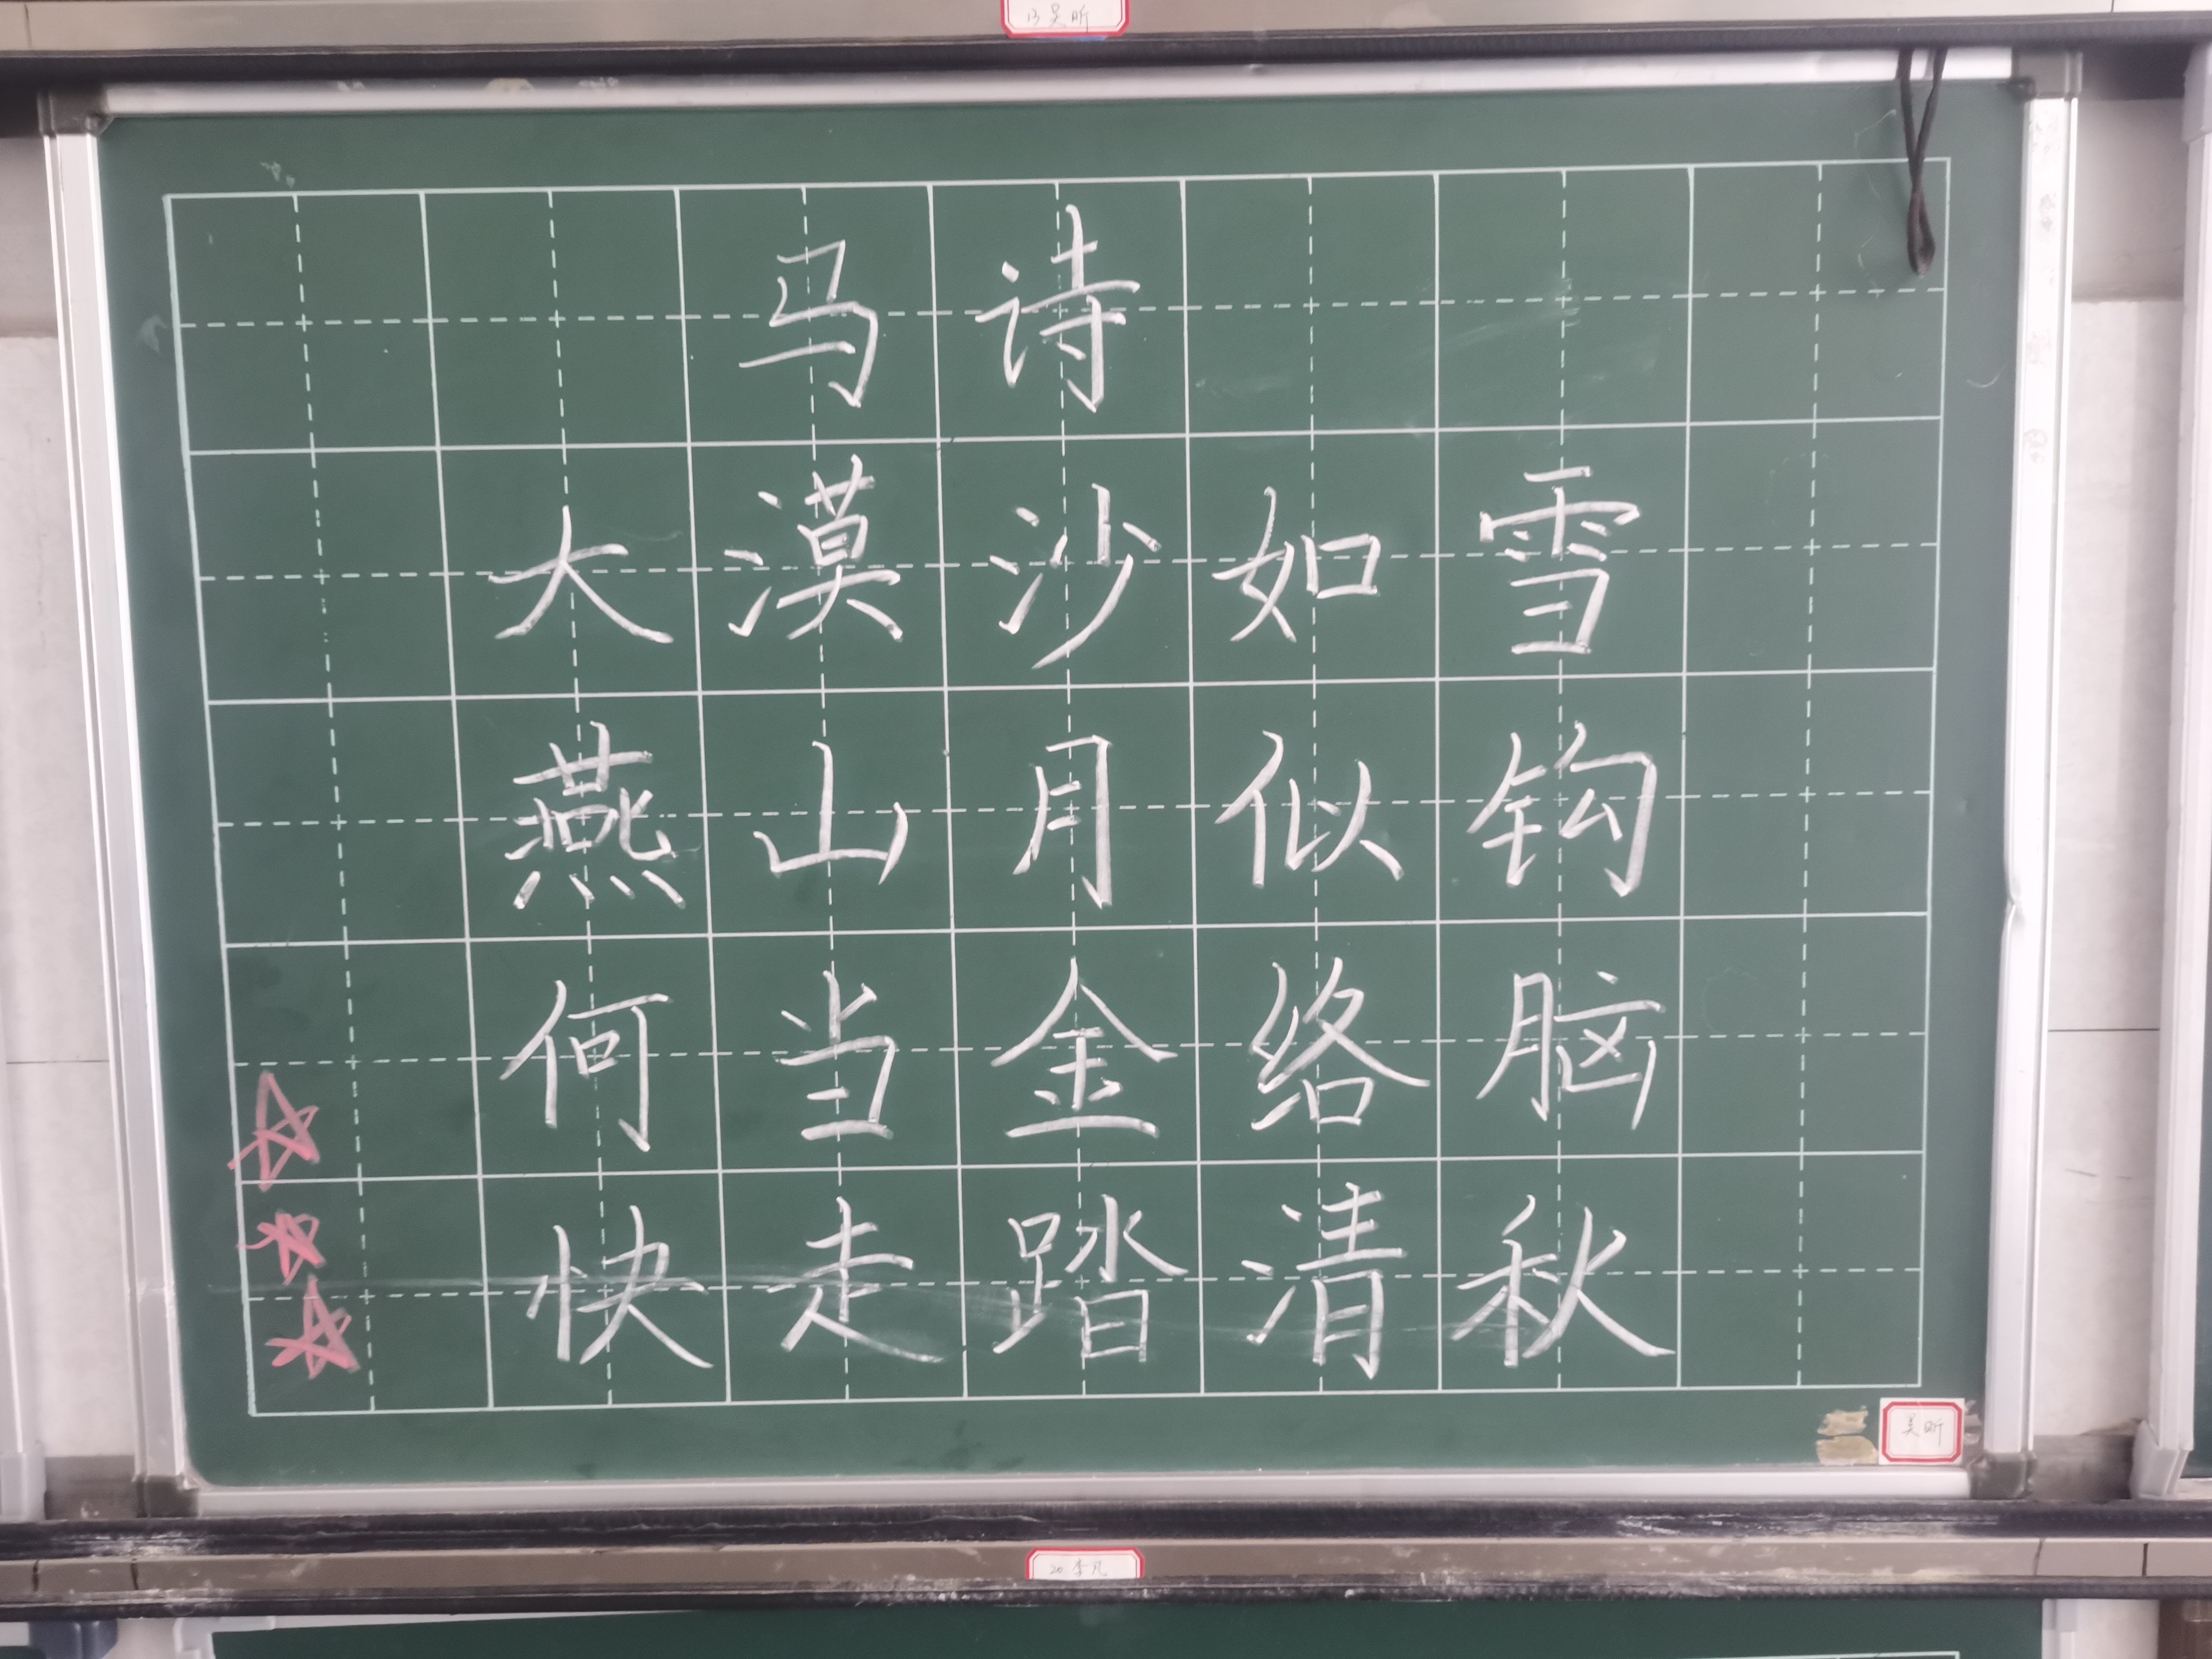 13 吴昕
马诗
大漠沙如雪
燕山月似钩
何当金络脑
快走踏清秋
吴昕
20 李凡